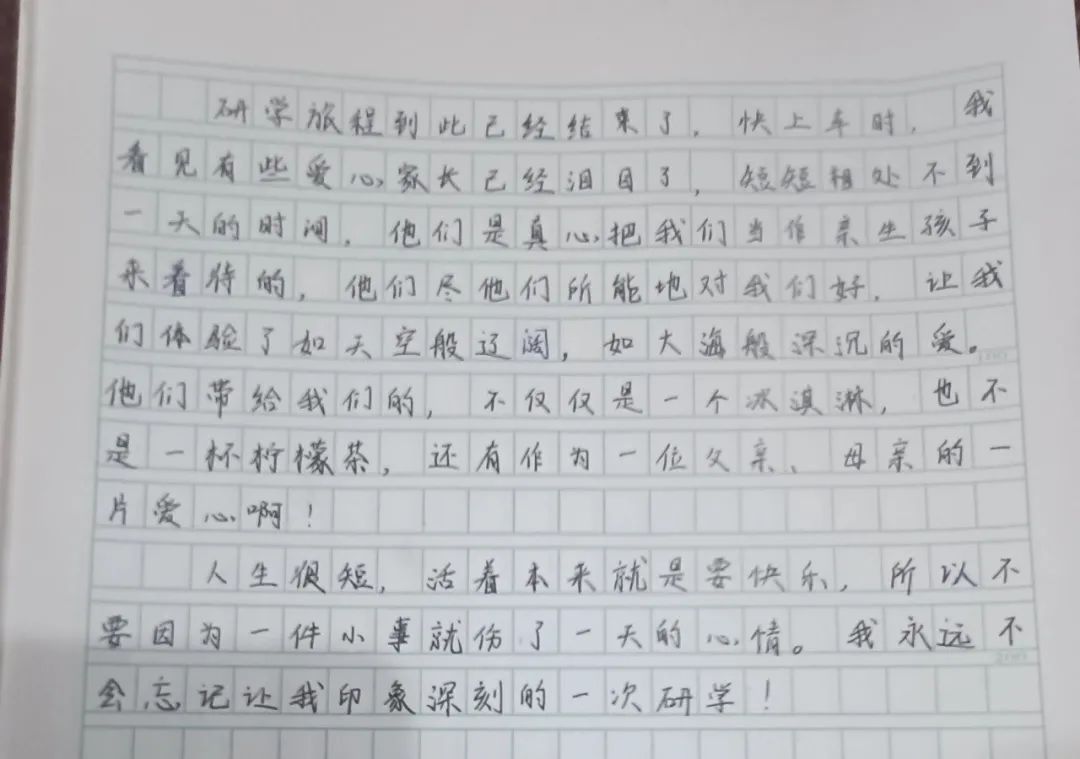 研学旅程到此已经结束了，快上车时，我
看见有些爱心家长已经泪目了，短短相处不到
一天的时间，他们是真心把我们当作亲生孩子
来看待的，他们尽他们所能地对我们好，让我
们体验了如天空般辽阔，如大海般深沉的爱。
他们带给我们的，不仅仅是一个冰淇淋，也不
是一杯柠檬茶，还有作为一位父亲、母亲的一
片爱心啊！
人生很短，活着本来就是要快乐，所以不
要因为一件小事就伤了一天的心情。我永远不
会忘记让我印象深刻的一次研学！